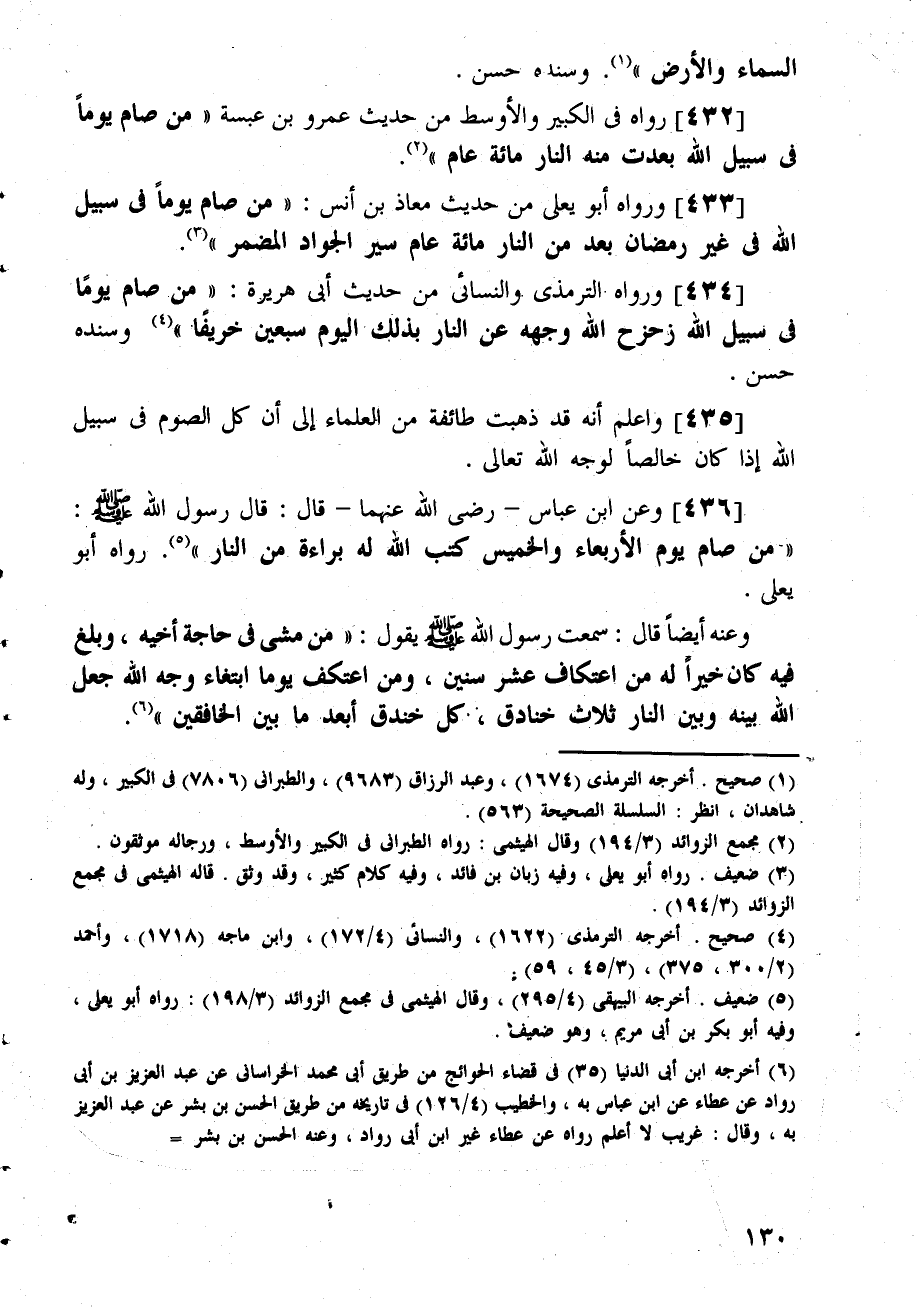 السماء والأرض »(١). وسنده حسن .
[٤٣٢] رواه فى الكبير والأوسط من حديث عمرو بن عبسة « من صام يوماً
فى سبيل الله بعدت منه النار مائة عام »(٢).
[٤٣٣] ورواه أبو يعلى من حديث معاذ بن أنس : « من صام يوماً فى سبيل
الله فى غير رمضان بعد من النار مائة عام سير الجواد المضمر »(٣).
[٤٣٤] ورواه الترمذى والنسائى من حديث أبى هريرة : « من صام يومًا
فى سبيل الله زحزح الله وجهه عن النار بذلك اليوم سبعين خريفًا »(٤) وسنده
حسن .
[٤٣٥] واعلم أنه قد ذهبت طائفة من العلماء إلى أن كل الصوم فى سبيل
الله إذا كان خالصاً لوجه الله تعالى .
[٤٣٦] وعن ابن عباس – رضى الله عنهما – قال : قال رسول الله ﷺ :
« من صام يوم الأربعاء والخميس كتب الله له براءة من النار »(٥). رواه أبو
يعلى .
وعنه أيضاً قال : سمعت رسول الله ﷺ يقول : « من مشى فى حاجة أخيه ، وبلغ
فيه كان خيراً له من اعتكاف عشر سنين ، ومن اعتكف يوما ابتغاء وجه الله جعل
الله بينه وبين النار ثلاث خنادق ، كل خندق أبعد ما بين الخافقين »(٦).
(١) صحيح . أخرجه الترمذى (١٦٧٤) ، وعبد الرزاق (٩٦٨٣) ، والطبرانى (٧٨٠٦) فى الكبير ، وله
شاهدان ، انظر : السلسلة الصحيحة (٥٦٣) .
(٢) مجمع الزوائد (١٩٤/٣) وقال الهيثمى : رواه الطبرانى فى الكبير والأوسط ، ورجاله موثقون .
(٣) ضعيف . رواه أبو يعلى ، وفيه زبان بن فائد ، وفيه كلام كثير ، وقد وثق . قاله الهيثمى فى مجمع
الزوائد (١٩٤/٣) .
(٤) صحيح . أخرجه الترمذى (١٦٢٢) ، والنسائى (١٧٢/٤) ، وابن ماجه (١٧١٨) ، وأحمد
(٣٠٠/٢ ، ٣٧٥) ، (٤٥/٣ ، ٥٩) .
(٥) ضعيف . أخرجه البيهقى (٢٩٥/٤) ، وقال الهيثمى فى مجمع الزوائد (١٩٨/٣) : رواه أبو يعلى ،
وفيه أبو بكر بن أبى مريم ، وهو ضعيف .
(٦) أخرجه ابن أبى الدنيا (٣٥) فى قضاء الحوائج من طريق أبى محمد الخراسانى عن عبد العزيز بن أبى
رواد عن عطاء عن ابن عباس به ، والخطيب (١٢٦/٤) فى تاريخه من طريق الحسن بن بشر عن عبد العزيز
به ، وقال : غريب لا أعلم رواه عن عطاء غير ابن أبى رواد ، وعنه الحسن بن بشر =
١٣٠